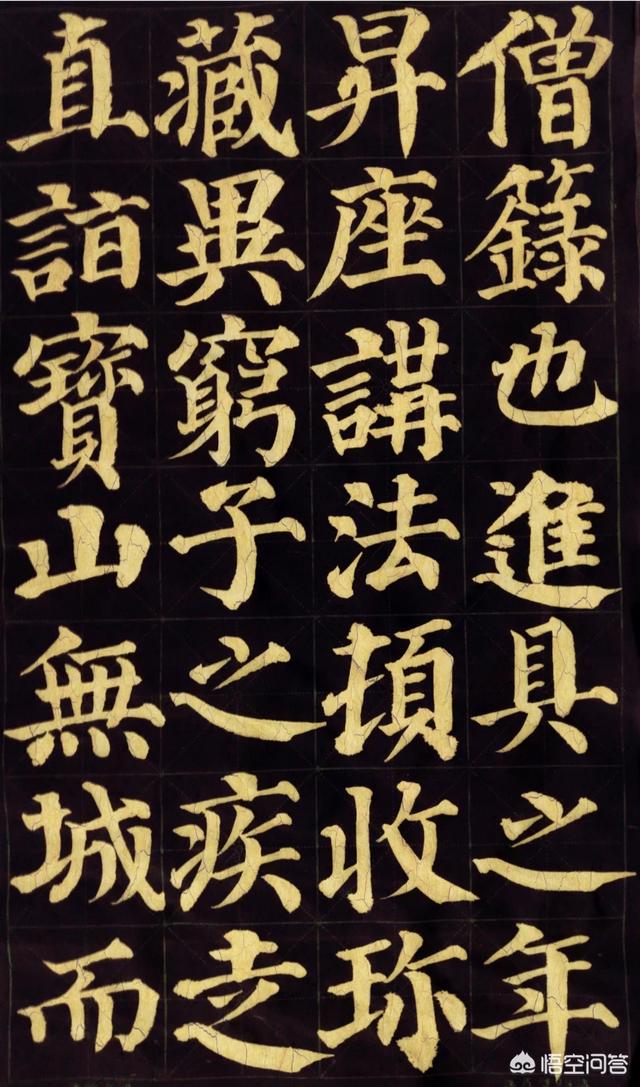 僧籙也進具之年
昇座講法頓收珍
藏異窮子之疾走
直詣寶山無城而
悟空问答